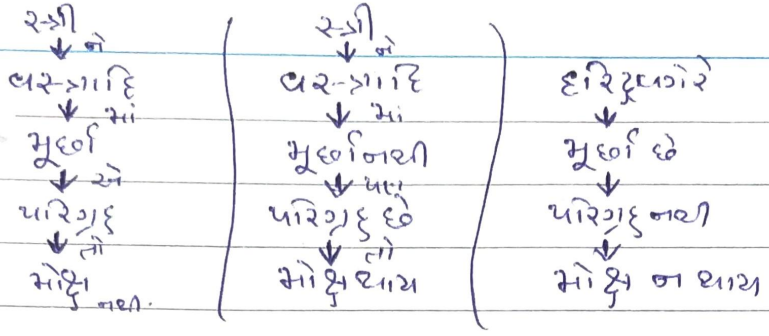 સ્ત્રી
↓ ને
વસ્ત્રાદિ
↓ માં
મૂર્છા
↓ એ
પરિગ્રહ
↓ તો
મોક્ષ નથી.
સ્ત્રી
↓ ને
વસ્ત્રાદિ
↓ માં
મૂર્છા નથી
↓ પણ
પરિગ્રહ છે
↓ તો
મોક્ષ થાય
દરિદ્ર વગેરે
↓
મૂર્છા છે
↓
પરિગ્રહ નથી
↓
મોક્ષ ન થાય